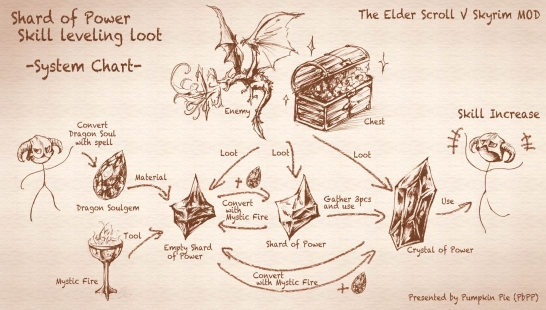 Shard of Power
Skill leveling loot
-System Chart-
The Elder Scroll V Skyrim MOD
Enemy
Chest
Skill Increase
Convert
Dragon Soul
with spell
Loot
Loot
Loot
Material
Dragon Soulgem
+
Convert
with
Mystic Fire
Gather 3pcs
and use
Use
Tool
Empty Shard
of Power
Shard of Power
Crystal of Power
Mystic Fire
Convert
with Mystic Fire +
Presented by Pumpkin Pie (PbPP)